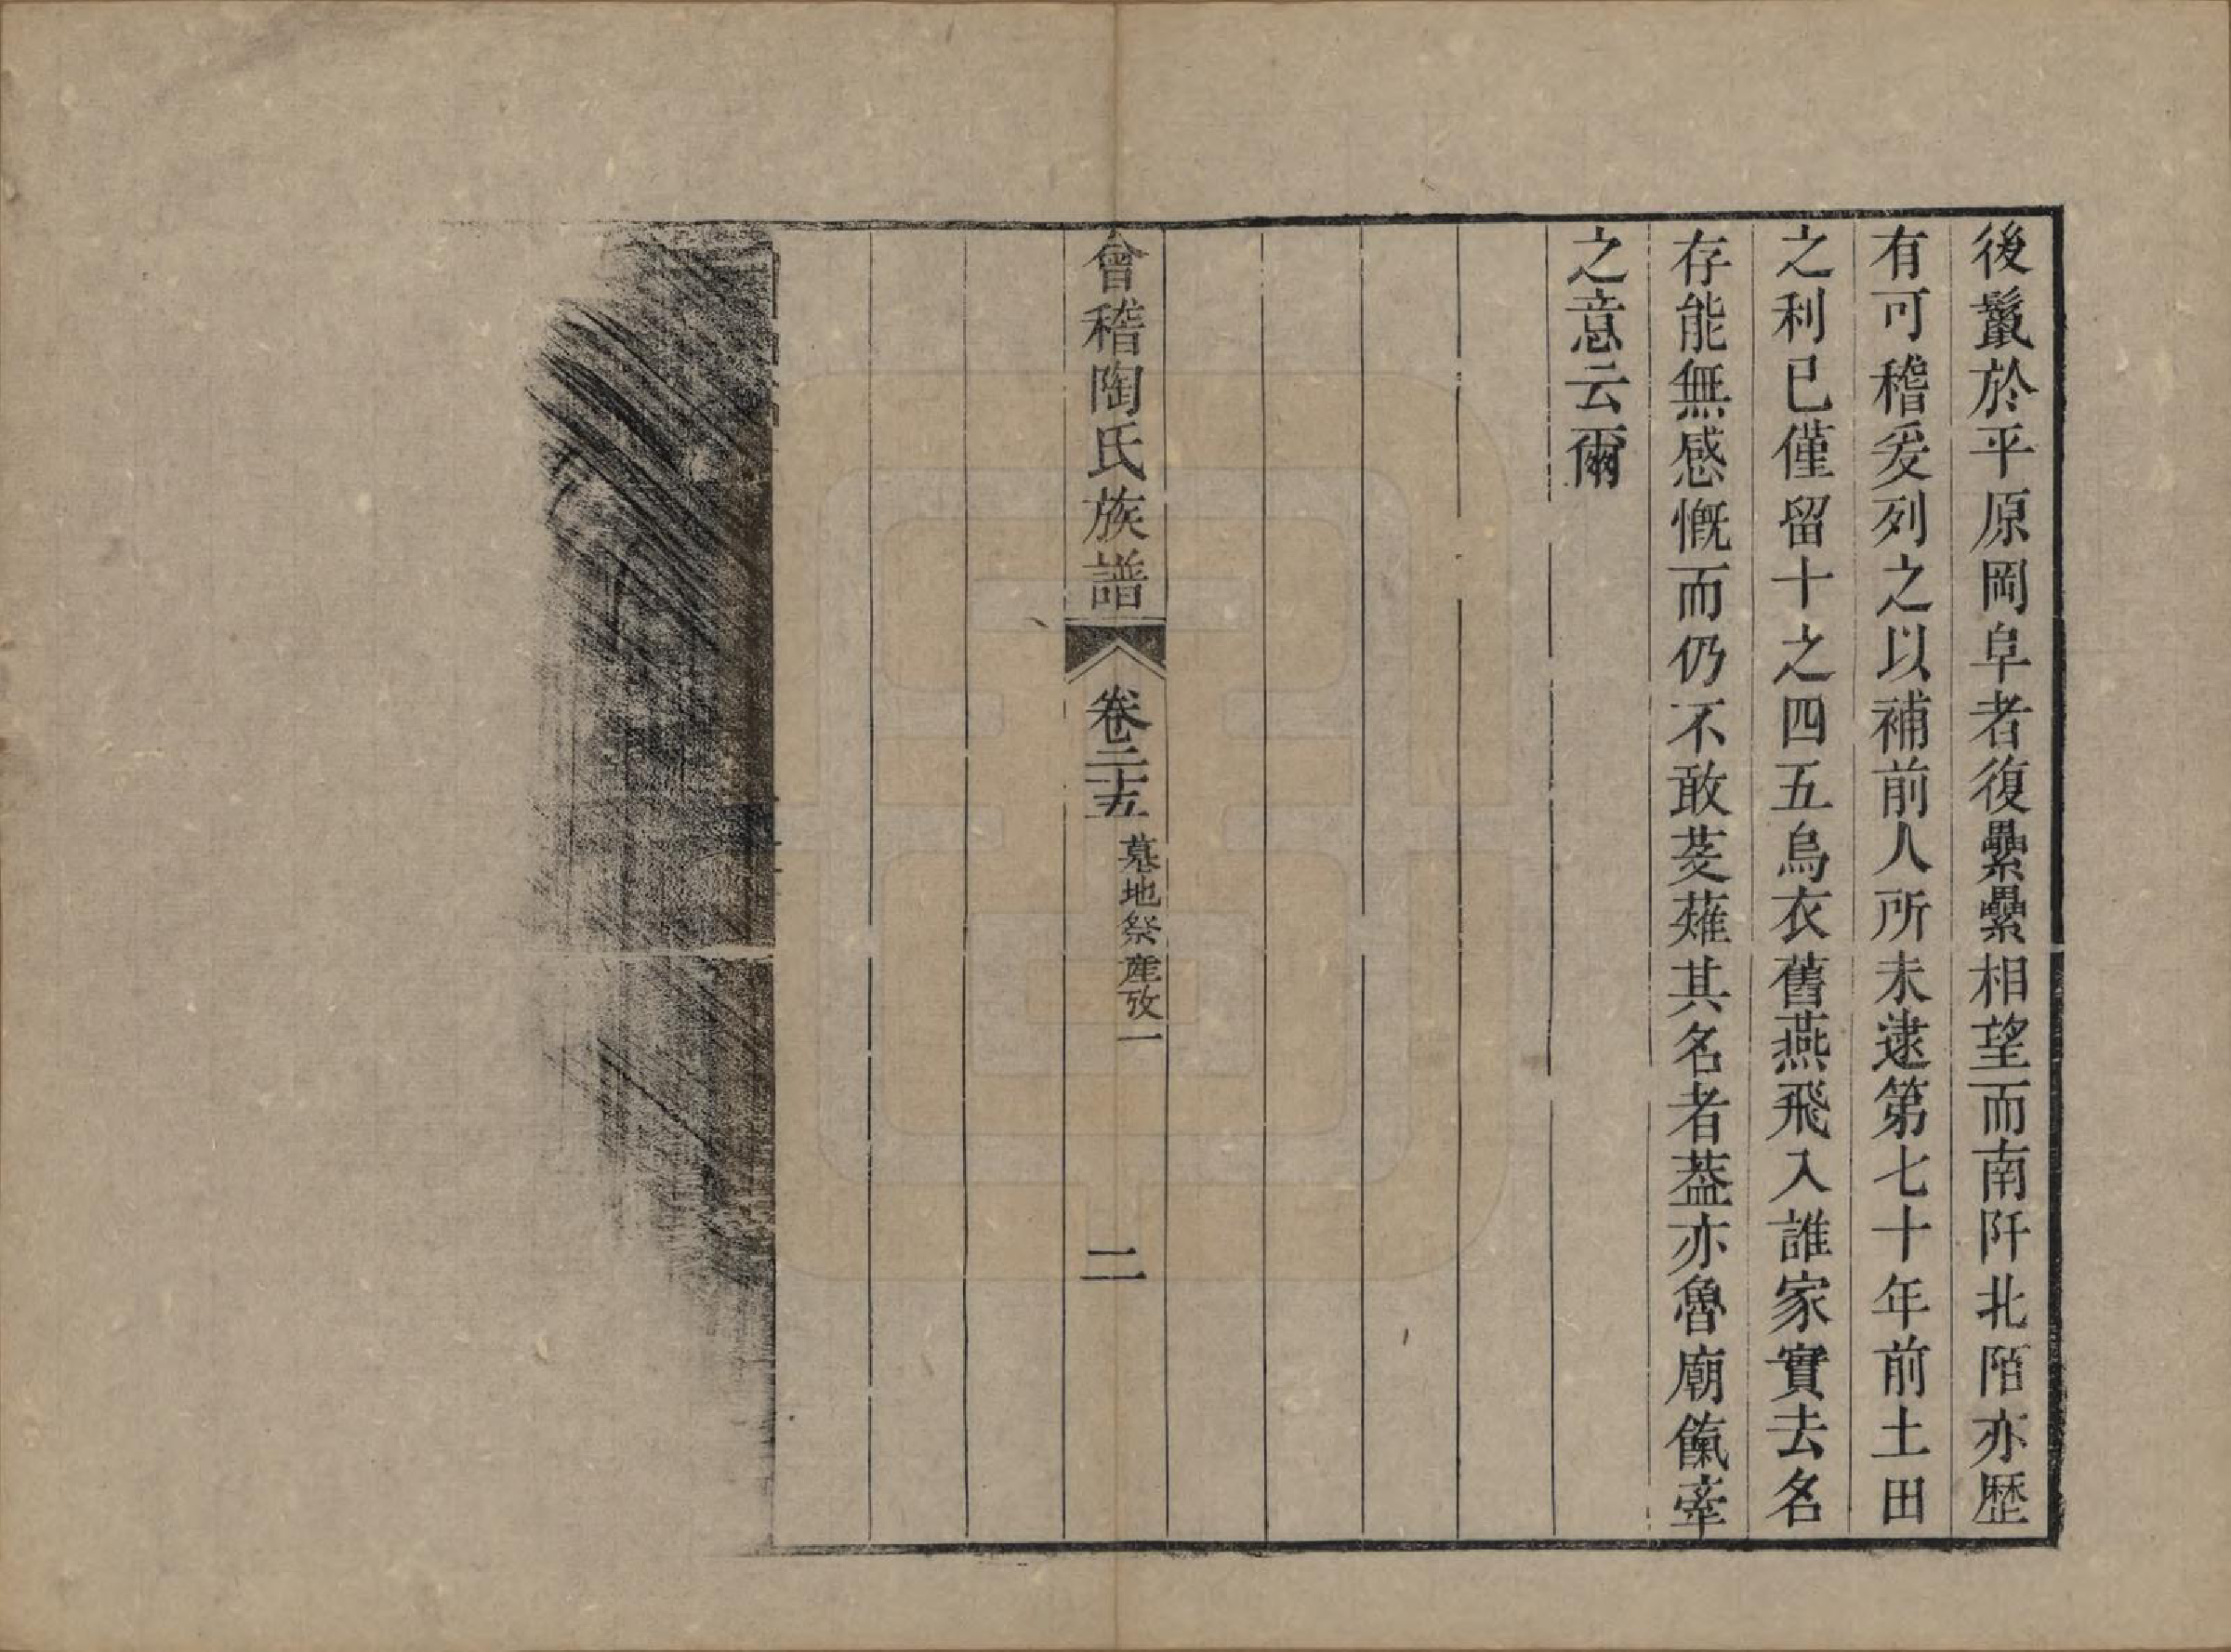 後鬣於平原岡阜者復纍纍相望而南阡北陌亦歴
有可稽爰列之以補前人所未逮第七十年前土田
之利已僅留十之四五烏衣舊燕飛入誰家實去名
存能無感慨而仍不敢芟薙其名者葢亦魯廟餼牽
之意云爾
會稽陶氏族譜
卷二十五
墓地祭產攷一
二